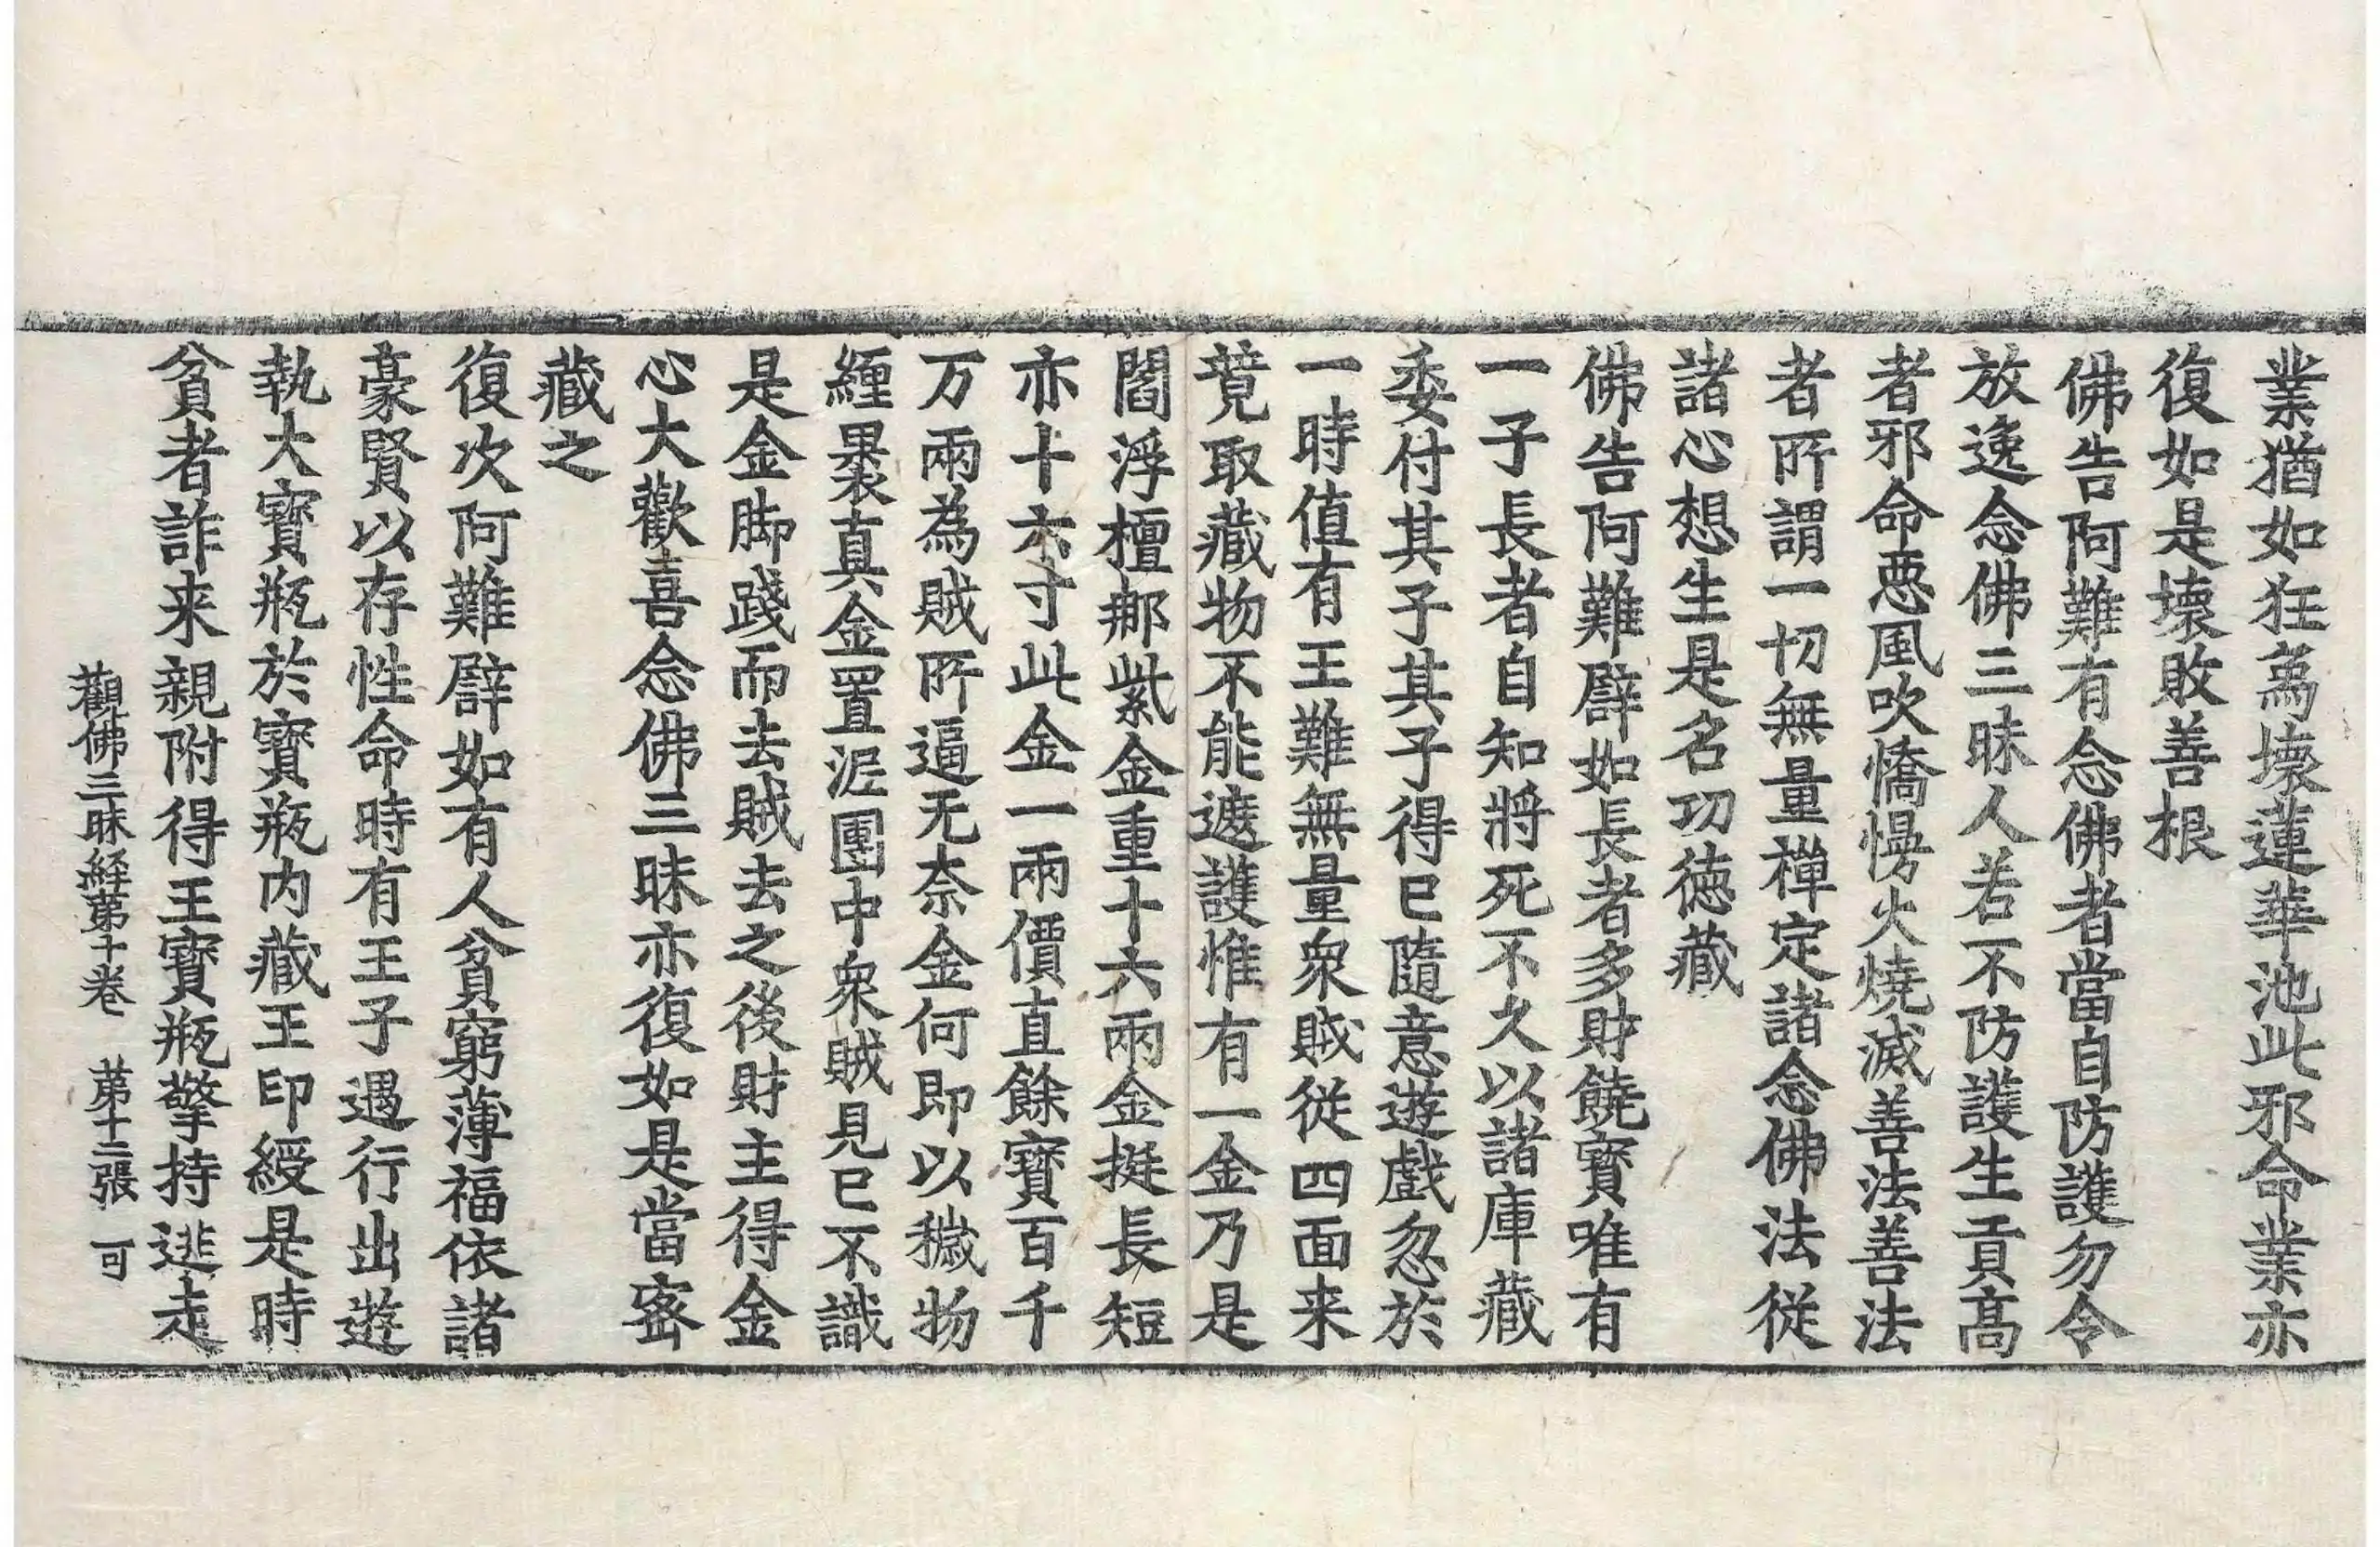 業猶如狂烏壊蓮華池此邪命業亦
復如是壊敗善根
佛告阿難有念佛者當自防護勿令
放逸念佛三昧人若不防護生貢髙
者邪命惡風吹憍慢火燒滅善法善法
者所謂一切無量禪定諸念佛法從
諸心想生是名功徳藏
佛告阿難譬如長者多財饒寶唯有
一子長者自知將死不久以諸庫藏
委付其子其子得已隨意遊戲忽於
一時值有王難無量衆賊從四面来
競取藏物不能遮護惟有一金乃是
閻浮檀那紫金重十六兩金挺長短
亦十六寸此金一兩價直餘寶百千
万兩為賊所逼无奈金何即以穢物
纒褁真金置泥團中衆賊見已不識
是金脚踐而去賊去之後財主得金
心大歡喜念佛三昧亦復如是當密
藏之
復次阿難譬如有人貧窮薄福依諸
豪賢以存性命時有王子遇行出遊
執大寶瓶於寶瓶内藏王印綬是時
貧者詐来親附得王寶瓶擎持逃走
觀佛三昧経第十卷 第十二張 可